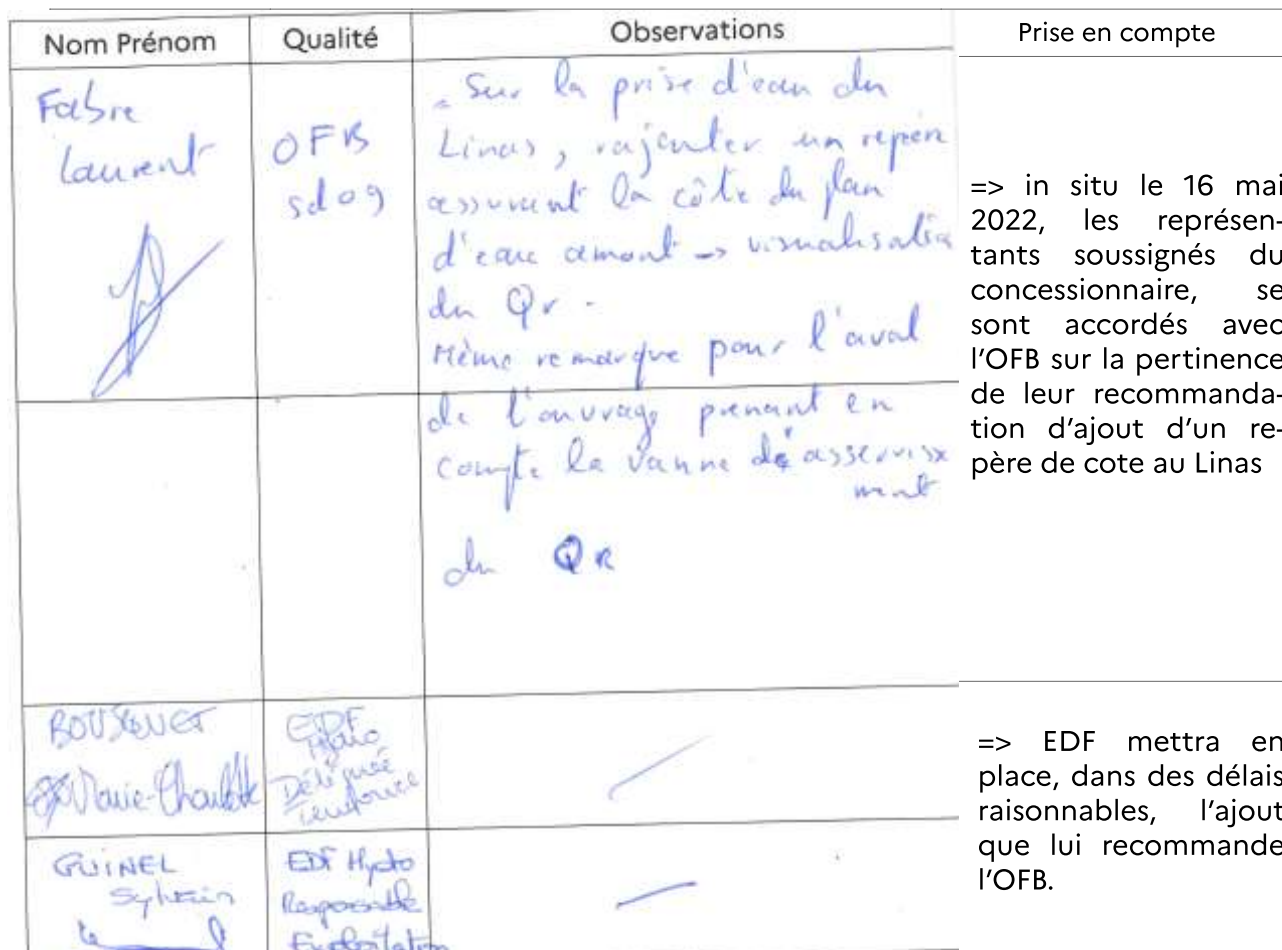 Nom Prénom
Qualité
Observations
Prise en compte
Fabre
Laurent
OFB
sd09
- Sur la prise d'eau du
Linas, rajouter un repère
assurant la côte du plan
d'eau amont -> visualisation
du Qr.
Même remarque pour l'aval
de l'ouvrage prenant en
compte la vanne d'asservisse
ment
du QR
=> in situ le 16 mai
2022, les représen-
tants soussignés du
concessionnaire, se
sont accordés avec
l'OFB sur la pertinence
de leur recommanda-
tion d'ajout d'un re-
père de cote au Linas
BOUSQUET
Marie-Charlotte
EDF
Hydro
Déléguée
Territoriale
=> EDF mettra en
place, dans des délais
raisonnables, l'ajout
que lui recommande
l'OFB.
GUINEL
Sylvain
EDF Hydro
Responsable
Exploitation